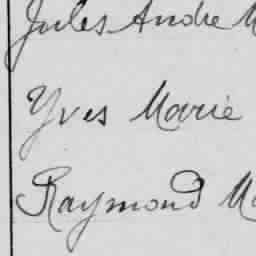 Jules Andre M
Yves Marie
Raymond Ma